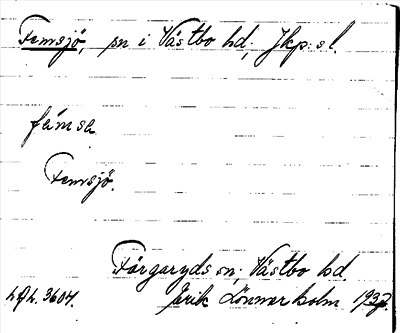 Femsjö, sn i Västbo hd, Jkp:s l.
fämsa
Femsjö.
Färgaryds sn, Västbo hd.
3604. Erik Lönnerholm 1937.